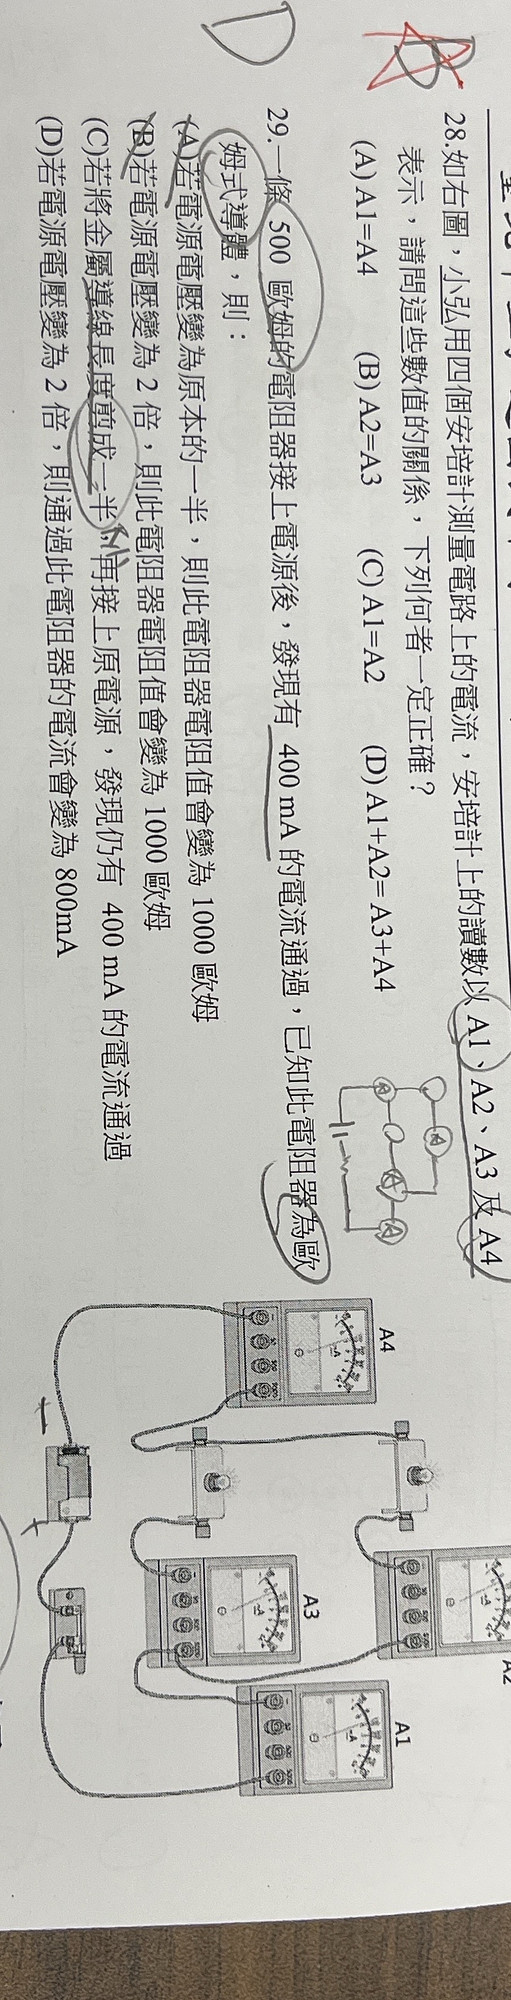 28.如右圖，小弘用四個安培計測量電路上的電流，安培計上的讀數以 A1、A2、A3 及 A4
表示，請問這些數值的關係，下列何者一定正確？
(A) A1=A4 (B) A2=A3 (C) A1=A2 (D) A1+A2= A3+A4
D
29.一條 500 歐姆的電阻器接上電源後，發現有 400 mA 的電流通過，已知此電阻器為歐
姆式導體，則：
(A)若電源電壓變為原本的一半，則此電阻器電阻值會變為 1000 歐姆
(B)若電源電壓變為 2 倍，則此電阻器電阻值會變為 1000 歐姆
(C)若將金屬導線長度剪成一半，再接上原電源，發現仍有 400 mA 的電流通過
(D)若電源電壓變為 2 倍，則通過此電阻器的電流會變為 800mA
A4
A3
A2
A1